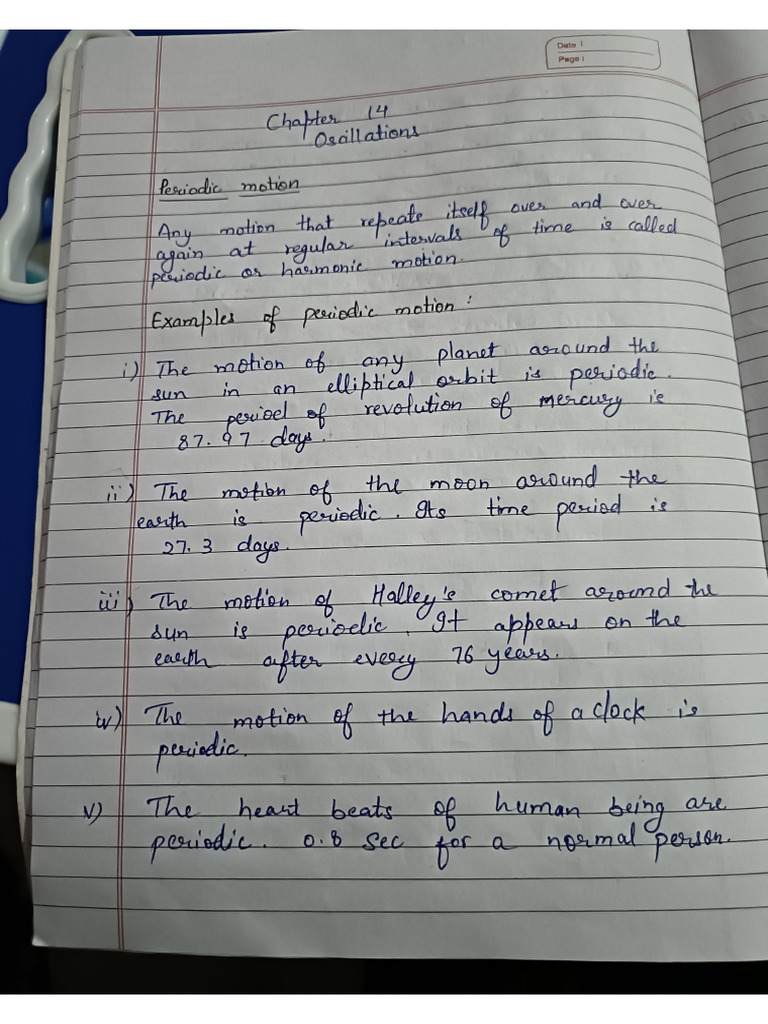 Date :
Page :
Chapter 14
Oscillations
Periodic motion
Any motion that repeate itself over and over
again at regular intervals of time is called
periodic or harmonic motion.
Examples of periodic motion :
i) The motion of any planet around the
sun in an elliptical orbit is periodic.
The period of revolution of mercury is
87.97 days.
ii) The motion of the moon around the
earth is periodic. Its time period is
27.3 days.
iii) The motion of Halley's comet around the
sun is periodic. It appears on the
earth after every 76 years.
iv) The motion of the hands of a clock is
periodic.
v) The heart beats of human being are
periodic. 0.8 sec for a normal person.